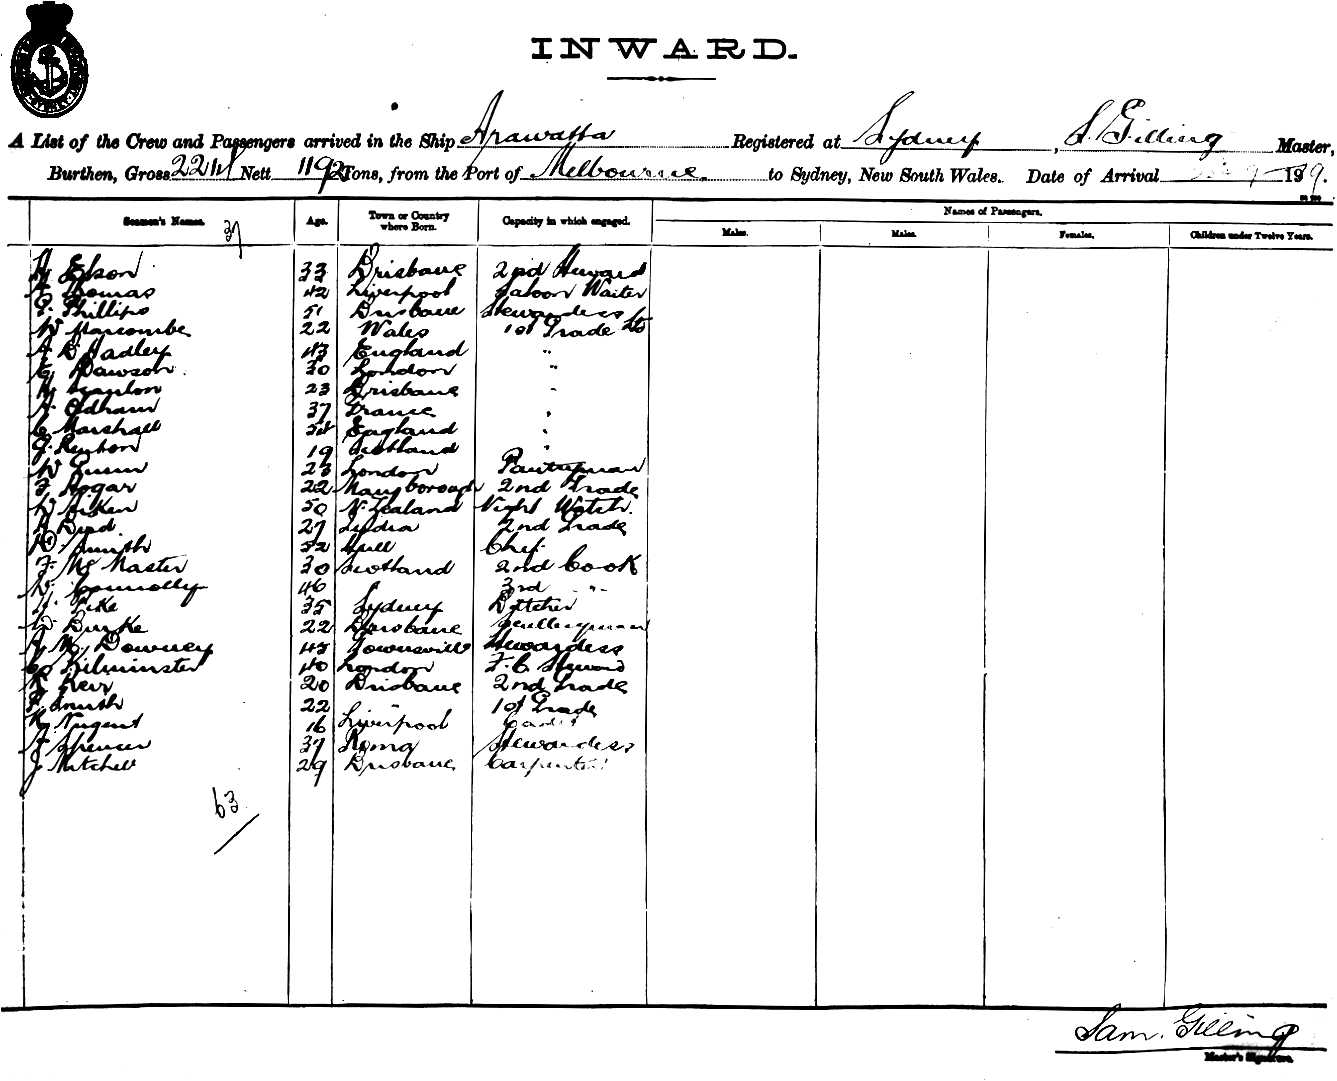 INWARD.
A List of the Crew and Passengers arrived in the Ship Arawatta Registered at Sydney, S. Gilling Master,
Burthen, Gross 2241 Nett 1192 Tons, from the Port of Melbourne. to Sydney, New South Wales. Date of Arrival 19 9.
Seamen's Names. 37 Age. Town or Country where Born. Capacity in which engaged. Names of Passengers.
Males. Males. Females. Children under Twelve Years.
33 Brisbane 2nd Steward
Thomas 42 Liverpool Saloon Waiter
Phillips 51 Brisbane Stewardess
W 22 Wales 1st Grade
A B Hadley 43 England "
Dawson 30 London "
Scanlon 23 Brisbane "
Oldham 37 France "
C Marshall England "
19 Scotland "
W 23 London Pantryman
22 Maryborough 2nd Grade
Aiken 50 N. Zealand Night Watch.
Bird 27 2nd Grade
Smith 52 Hull Chef
F. Mc Master 30 Scotland 2nd Cook
Connolly 46 3rd "
Pike 35 Sydney Butcher
Burke 22 Brisbane Sculleryman
Mc Downey Townsville Stewardess
Kilminster 40 London F. C. Steward
Keir 20 Brisbane 2nd Grade
Smith 22 " 1st Grade
Nugent 16 Liverpool Cadet
Spencer 37 Roma Stewardess
J Mitchell 29 Brisbane Carpenter
63
Sam. Gilling
Master's Signature.